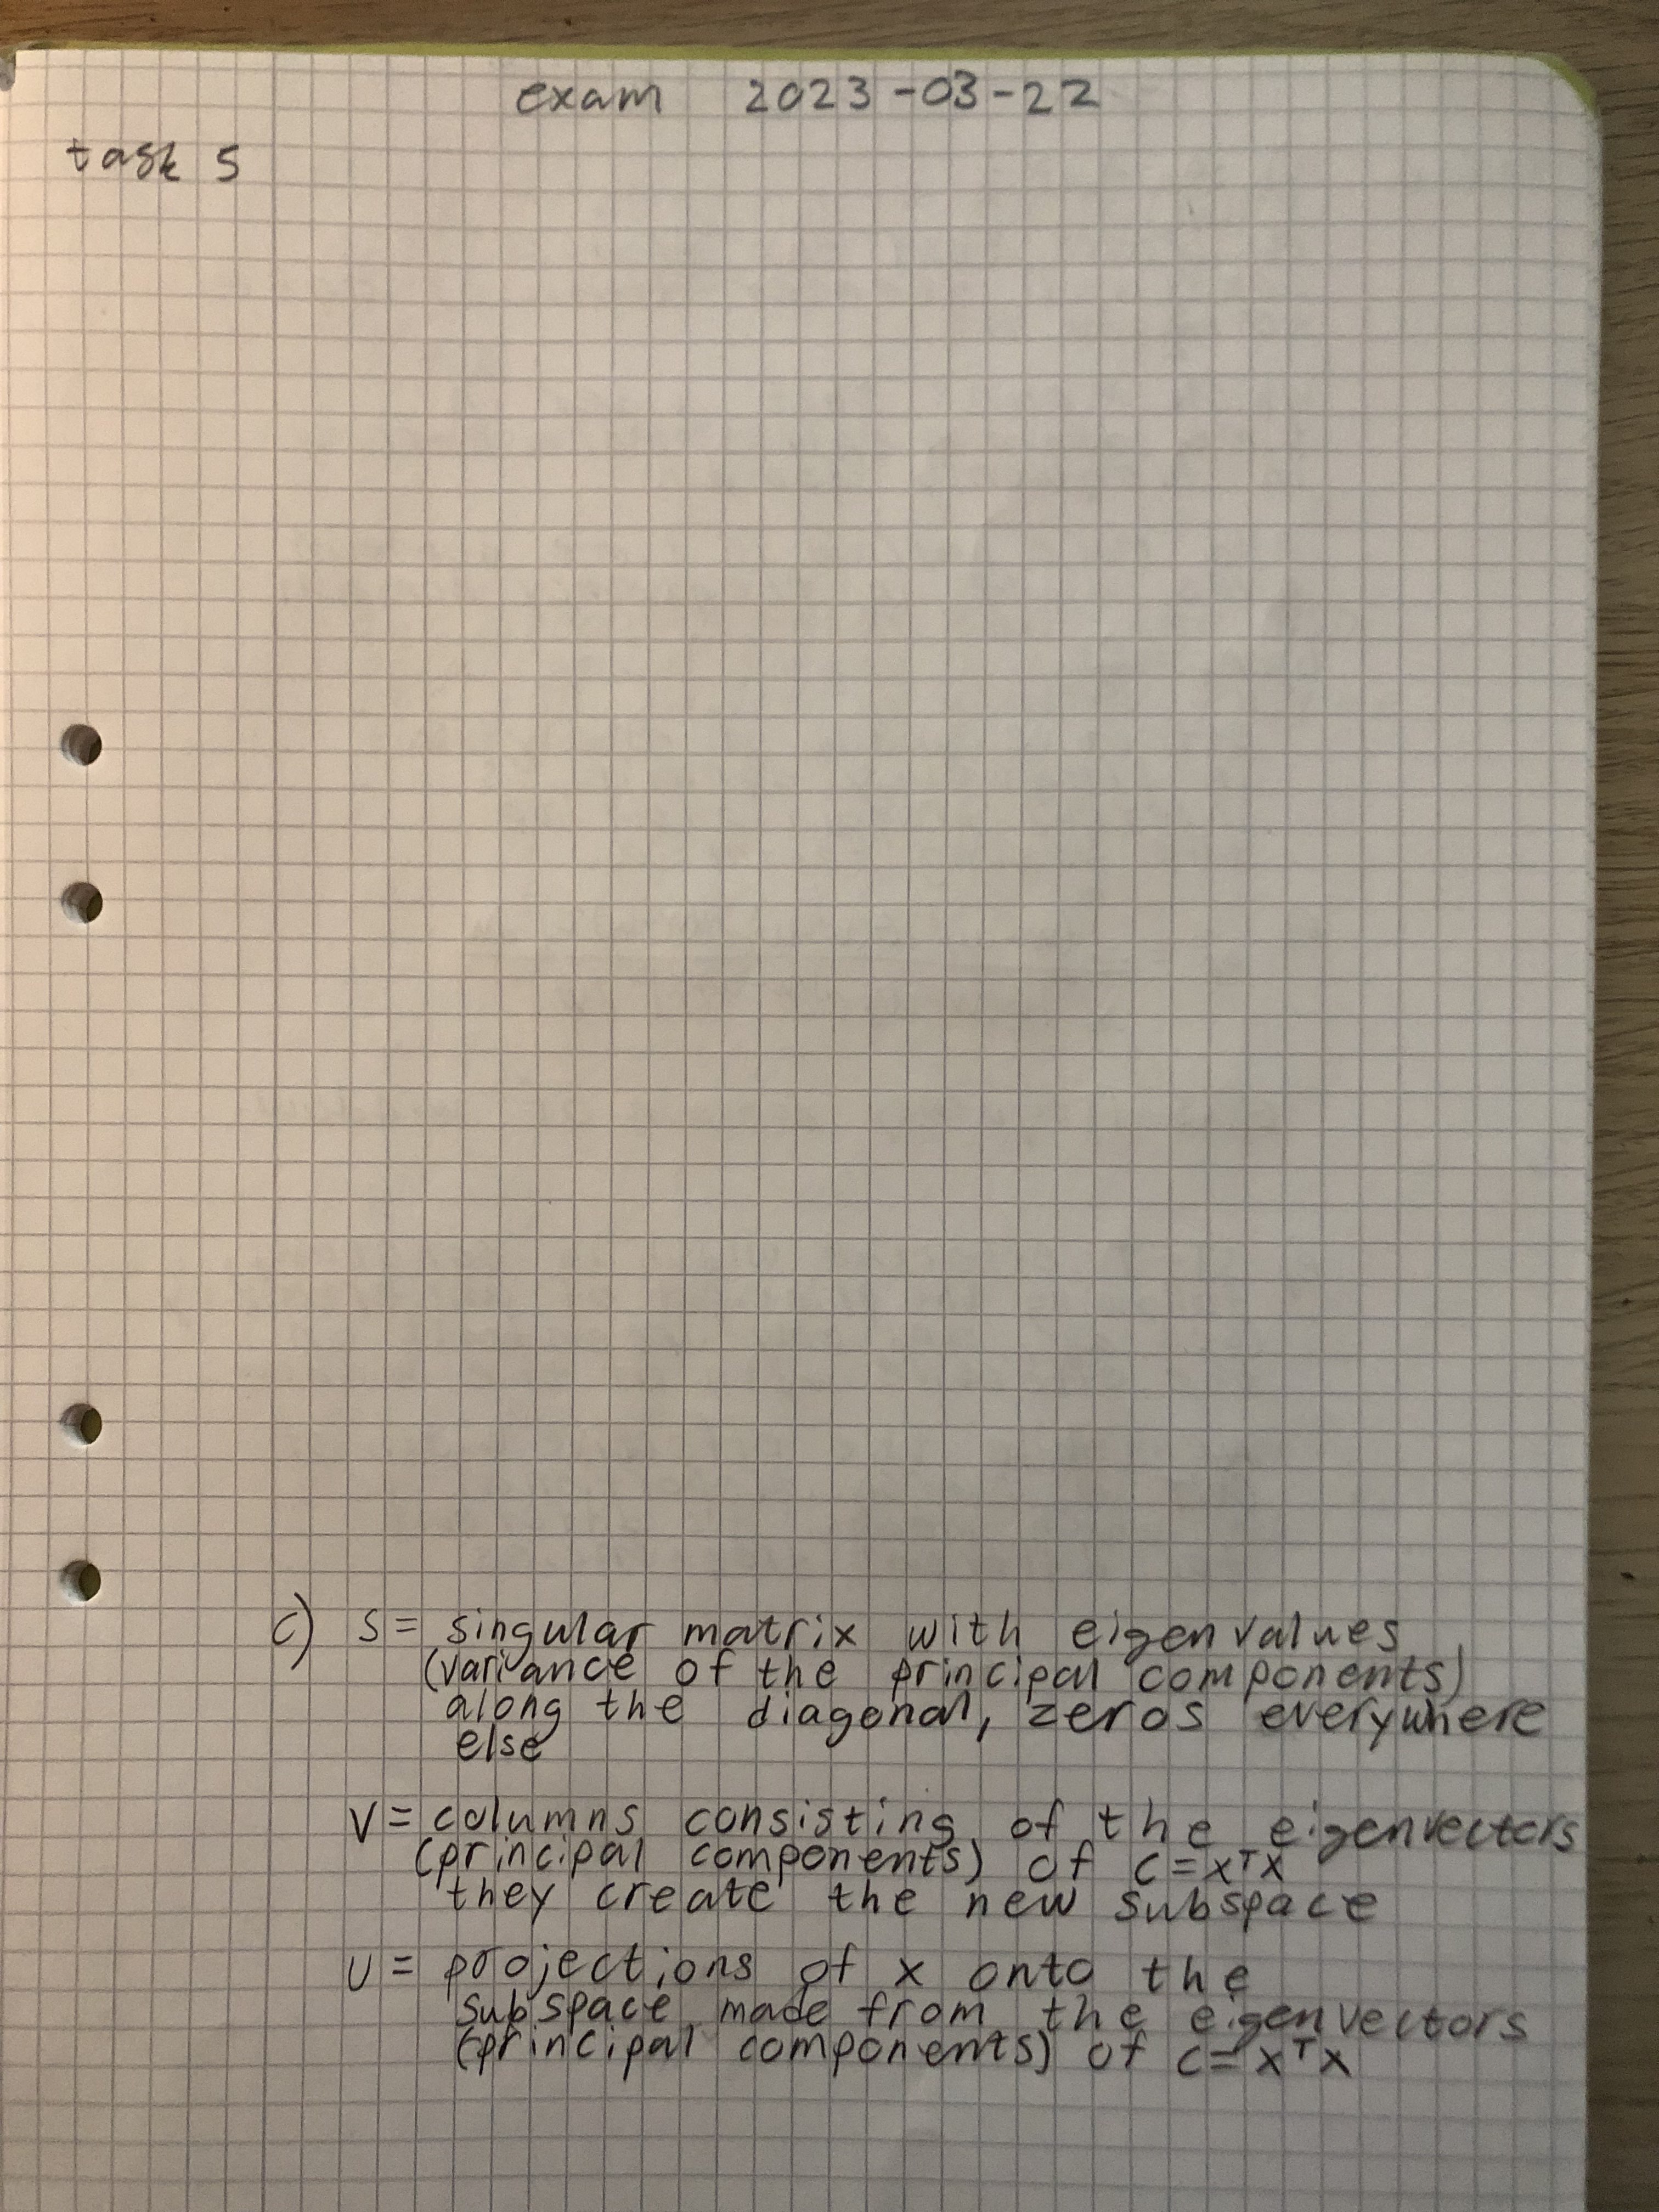 exam 2023-03-22
task 5
c) S = singular matrix with eigenvalues
(variance of the principal components)
along the diagonal, zeros everywhere
else
V = columns consisting of the eigenvectors
(principal components) of C = XᵀX
they create the new subspace
U = projections of X onto the
subspace made from the eigenvectors
(principal components) of C = XᵀX